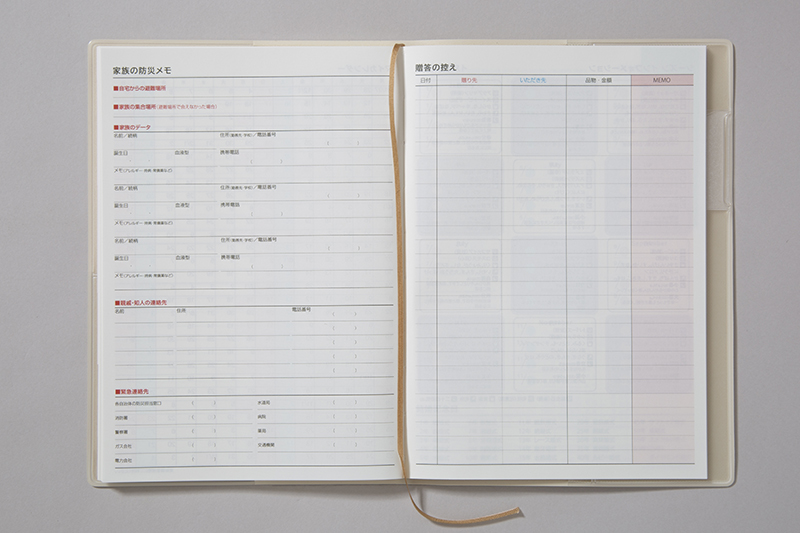 家族の防災メモ
■自宅からの避難場所
■家族の集合場所(避難場所で会えなかった場合)
■家族のデータ
名前／続柄 住所(勤務先・学校)／電話番号
( )
誕生日 血液型 携帯電話
メモ(アレルギー・持病・常備薬など)
名前／続柄 住所(勤務先・学校)／電話番号
( )
誕生日 血液型 携帯電話
メモ(アレルギー・持病・常備薬など)
名前／続柄 住所(勤務先・学校)／電話番号
( )
誕生日 血液型 携帯電話
メモ(アレルギー・持病・常備薬など)
■親戚・知人の連絡先
名前 住所 電話番号
■緊急連絡先
各自治体の防災担当窓口 ( ) 水道局 ( )
消防署 ( ) 病院 ( )
警察署 ( ) 薬局 ( )
ガス会社 ( ) 交通機関 ( )
電力会社 ( )
贈答の控え
日付 贈り先 いただき先 品物・金額 MEMO